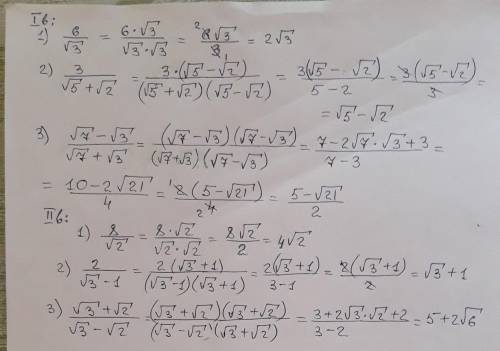 Iв:
1) 6/√3 = 6·√3/√3·√3 = ²6√3/3₁ = 2√3
2) 3/√5+√2 = 3·(√5-√2)/(√5+√2)(√5-√2) = 3(√5-√2)/5-2 = 3(√5-√2)/3 =
= √5-√2
3) √7-√3/√7+√3 = (√7-√3)(√7-√3)/(√7+√3)(√7-√3) = 7-2√7·√3+3/7-3 =
= 10-2√21/4 = ¹2(5-√21)/₂4 = 5-√21/2
IIв:
1) 8/√2 = 8·√2/√2·√2 = 8√2/2 = 4√2
2) 2/√3-1 = 2(√3+1)/(√3-1)(√3+1) = 2(√3+1)/3-1 = 2(√3+1)/2 = √3+1
3) √3+√2/√3-√2 = (√3+√2)(√3+√2)/(√3-√2)(√3+√2) = 3+2√3·√2+2/3-2 = 5+2√6